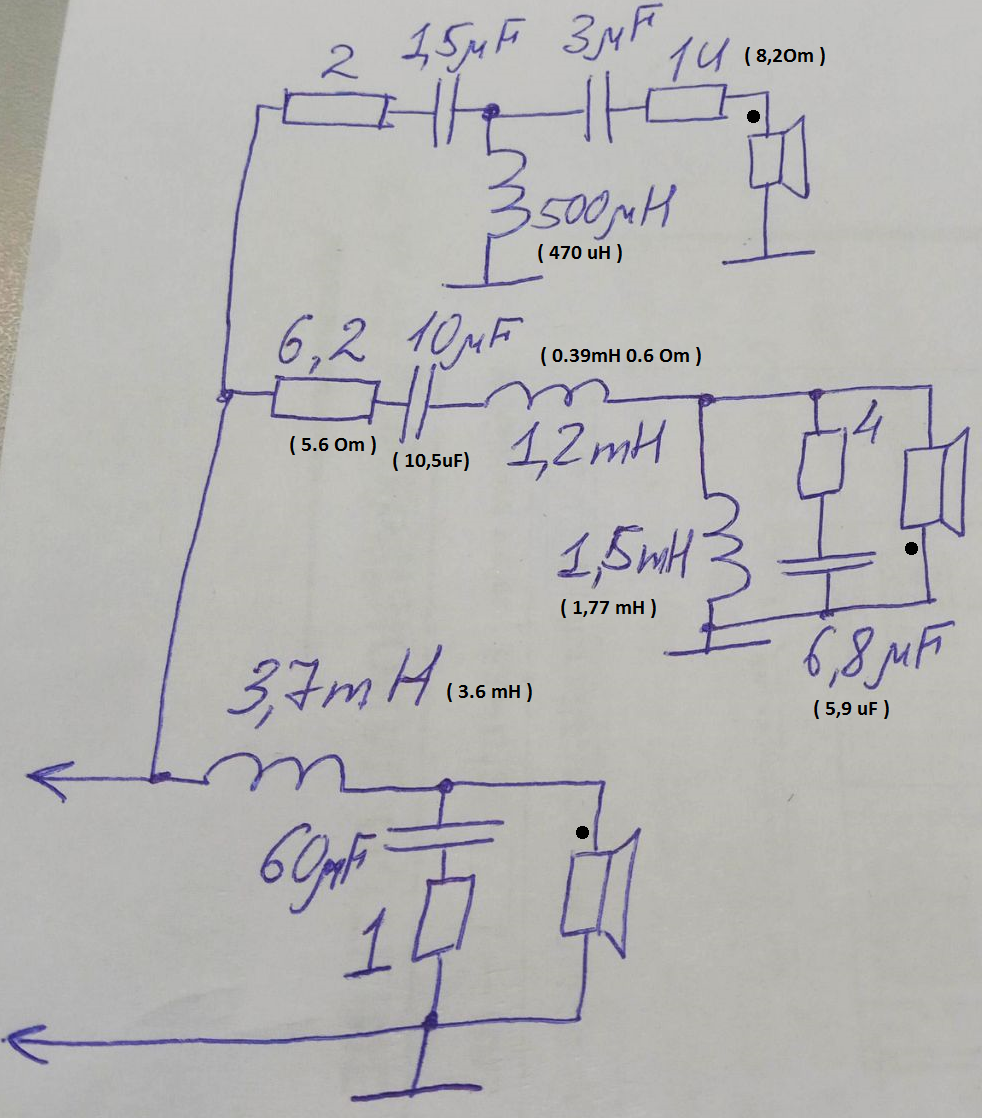 2
1,5μF
3μF
14 ( 8,2Om )
500μH
( 470 uH )
6,2
10μF
( 0.39mH 0.6 Om )
( 5.6 Om )
( 10,5uF)
1,2mH
4
1,5mH
( 1,77 mH )
6,8μF
( 5,9 uF )
3,7mH ( 3.6 mH )
60μF
1